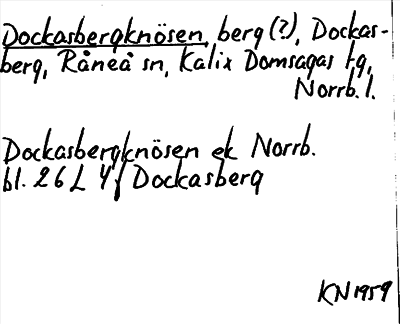 Dockasbergknösen, berg (?), Dockas-
berg, Råneå sn, Kalix Domsagas tg,
Norrb. l.
Dockasbergknösen ek Norrb.
bl. 26 L 4f Dockasberg
KN 1959